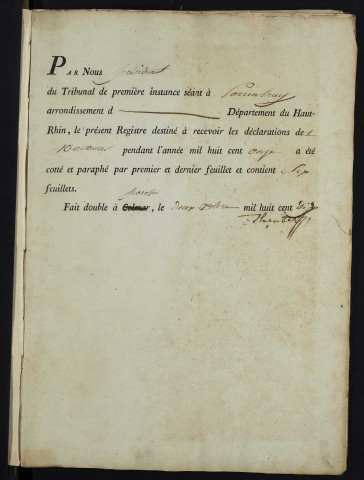 PAR Nous président
du Tribunal de première instance séant à Porrentruy
arrondissement d Département du Haut-
Rhin, le présent Registre destiné à recevoir les déclarations de
pendant l'année mil huit cent onze a été
cotté et paraphé par premier et dernier feuillet et contient Six
feuillets.
Fait double à Colmar, le deux mil huit cent Dix